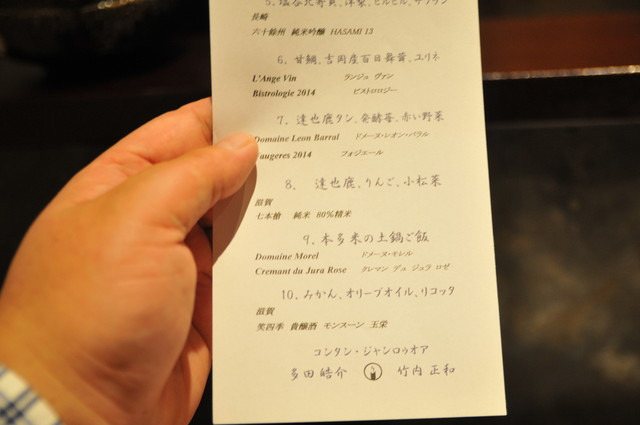 5、塩谷北寄貝、洋梨、ピルピル、
長崎
六十餘州 純米吟醸 HASAMI 13
6、甘鯛、吉岡産百日舞茸、ユリネ
L'Ange Vin ランジュ ヴァン
Bistrologie 2014 ビストロロジー
7、達也鹿タン、発酵苺、赤い野菜
Domaine Leon Barral ドメーヌ・レオン・バラル
Faugeres 2014 フォジェール
8、達也鹿、りんご、小松菜
滋賀
七本槍 純米 80％精米
9、本多米の土鍋ご飯
Domaine Morel ドメーヌ・モレル
Cremant du Jura Rose クレマン デュ ジュラ ロゼ
10、みかん、オリーブオイル、リコッタ
滋賀
笑四季 貴醸酒 モンスーン 玉栄
コンタン・ジャンロゥオア
多田 皓介 竹内 正和